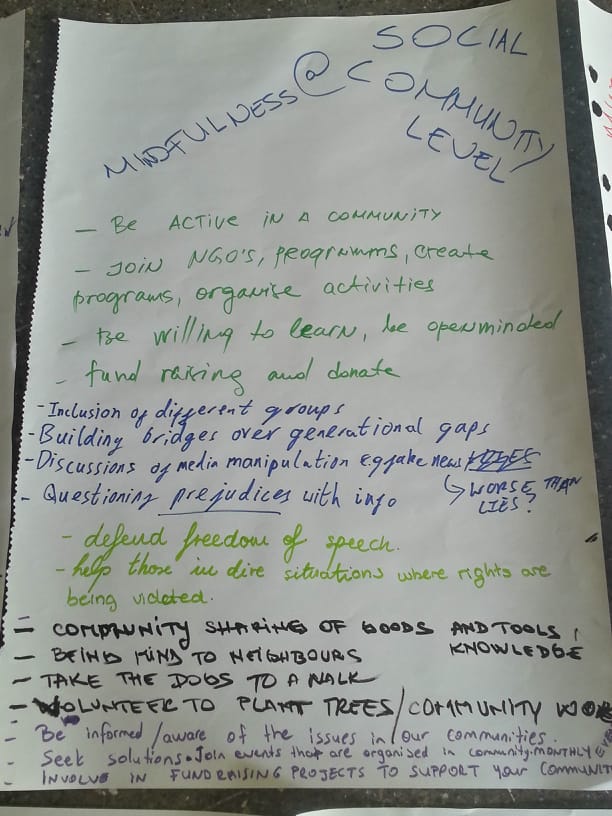 MINDFULNESS @ SOCIAL
COMMUNITY
LEVEL
- Be ACTIVE IN A COMMUNITY
- JOIN NGO'S, programms, create
programs, organise activities
- Be willing to learn, be openminded
- fund raising and donate
- Inclusion of different groups
- Building bridges over generational gaps
- Discussions of media manipulation e.g fake news
↳ WORSE THAN
LIES?
- Questioning prejudices with info
- defend freedom of speech.
- help those in dire situations where rights are
being violated.
- COMMUNITY SHARING OF GOODS AND TOOLS,
KNOWLEDGE
- BEING KIND TO NEIGHBOURS
- TAKE THE DOGS TO A WALK
- VOLUNTEER TO PLANT TREES / COMMUNITY WORK
- Be informed/aware of the issues in/our communities.
- Seek solutions. Join events that are organised in community-MONTHLY
- INVOLVE IN FUNDRAISING PROJECTS TO SUPPORT your COMMUNIT